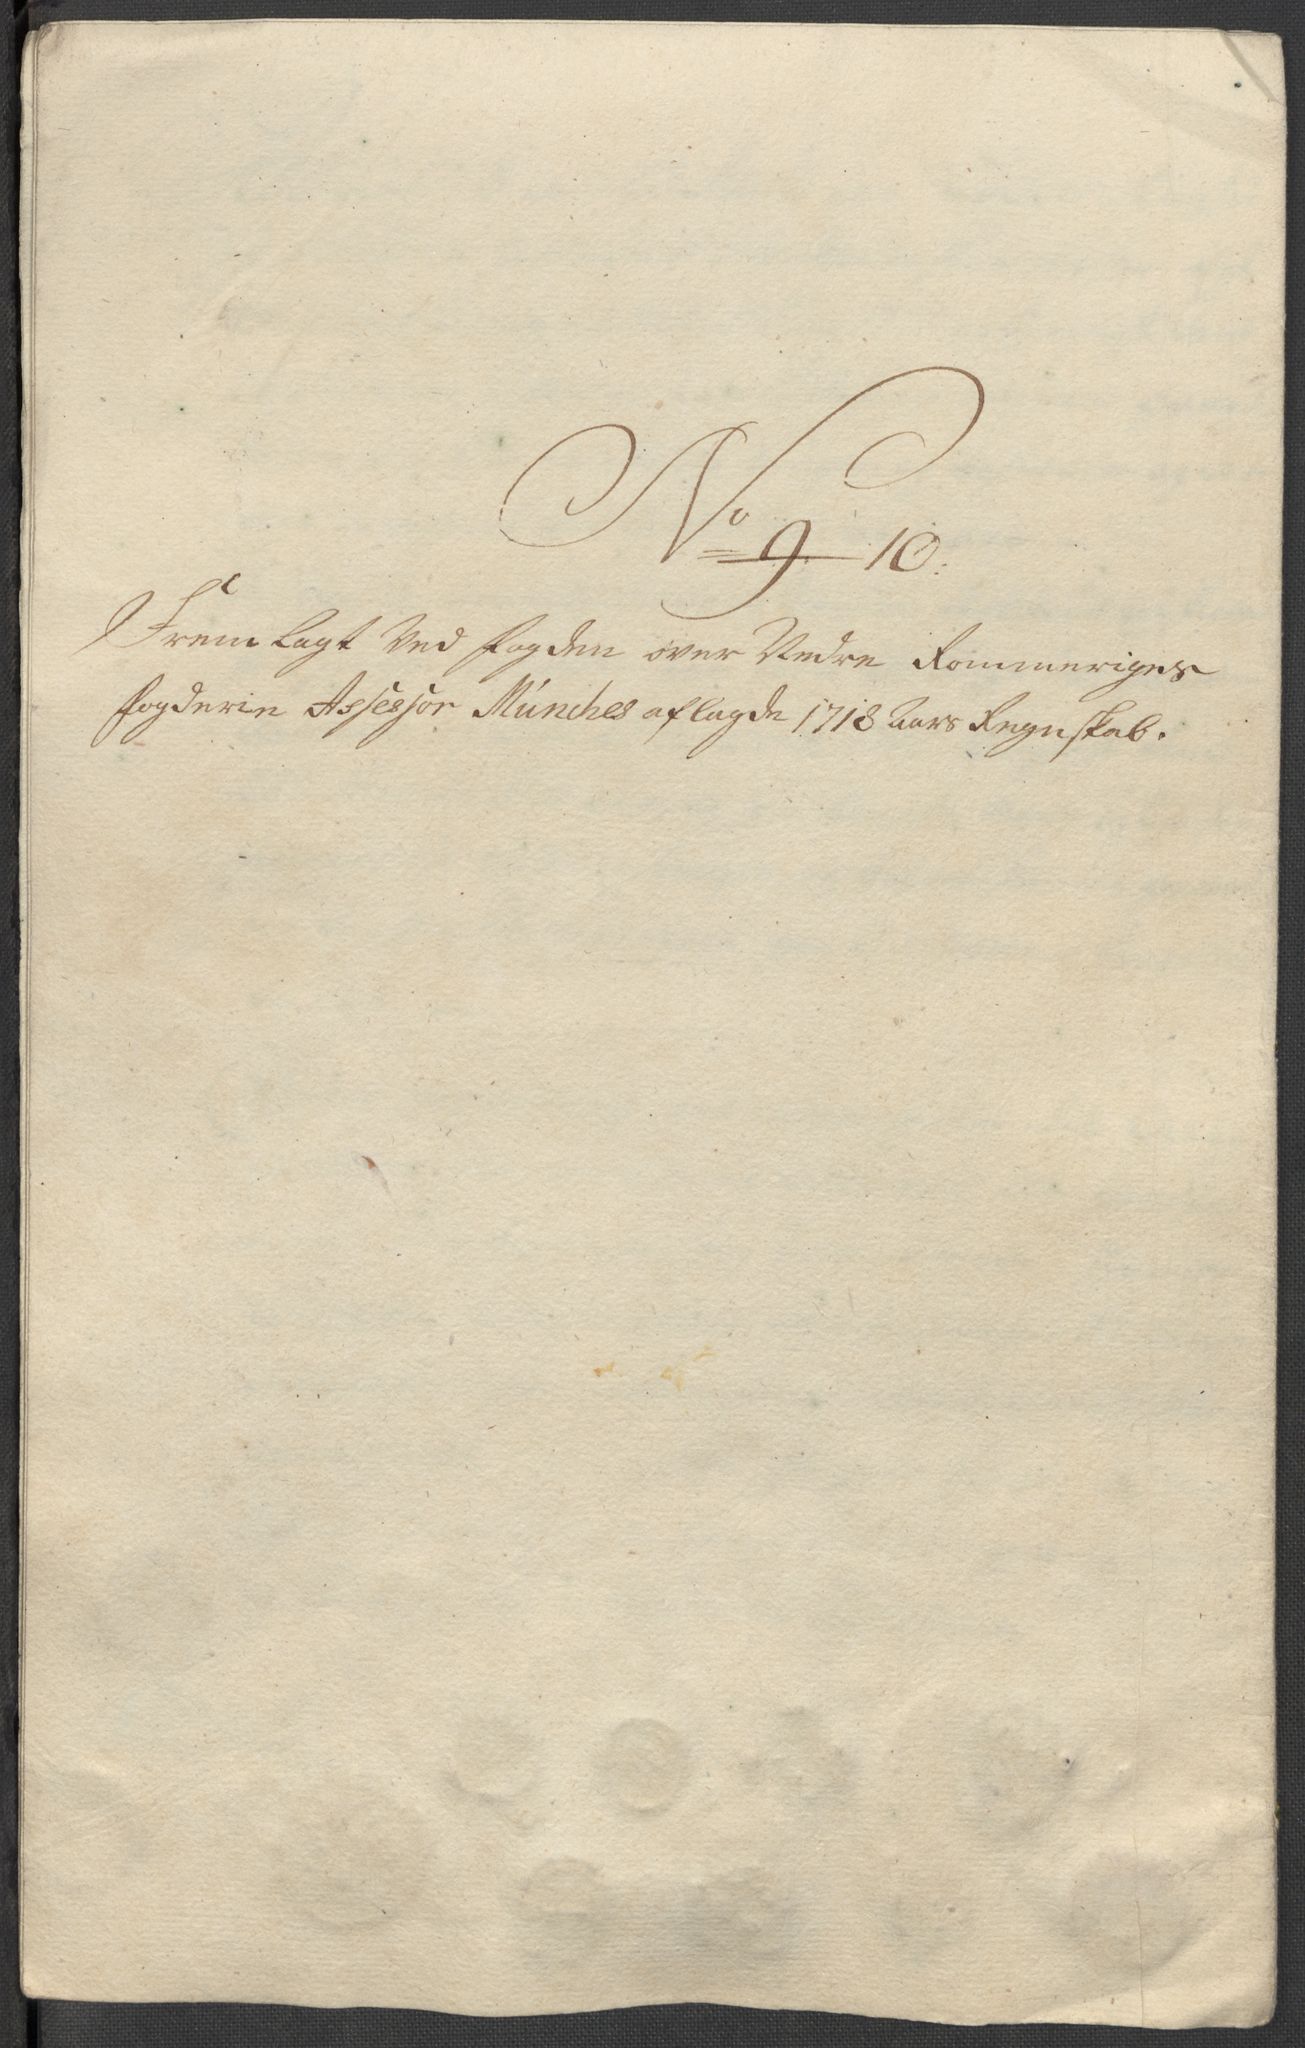 No 9 10.
Fremlagt Ved fogden over Nedre Rommeriges
fogderie Assessor Münches aflagde 1718 Aars Regnskab.